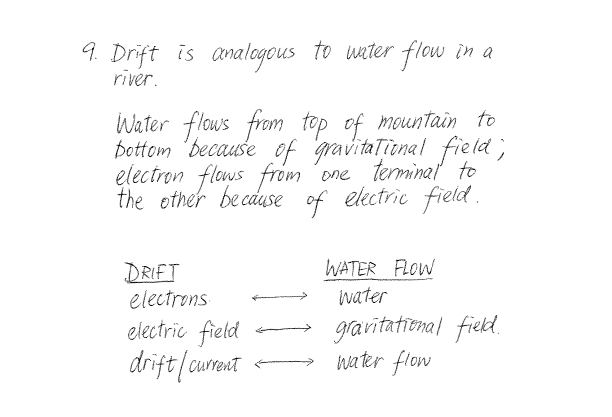 9. Drift is analogous to water flow in a
river.
Water flows from top of mountain to
bottom because of gravitational field;
electron flows from one terminal to
the other because of electric field.
DRIFT WATER FLOW
electrons ⟷ water
electric field ⟷ gravitational field.
drift/current ⟷ water flow